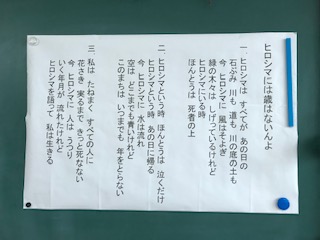 ヒロシマには歳はないんよ
一．ヒロシマは　すべてが　あの日の
石ぶみ　川も　道も　川の底の土も
今、ヒロシマに　風はそよぎ
緑の木々は　しげっているけれど
ヒロシマにいる時
ほんとうは　死者の上
二．ヒロシマという時　ほんとうは　泣くだけ
ヒロシマという時　あの日に帰る
今　ヒロシマに　水は流れ
空は　どこまでも青いけれど
このまちは　いつまでも　年をとらない
三．私は　たねまく　すべての人に
花さき　実るまで　きっと死なない
今　ヒロシマに　人は　うつり
いく年月が　流れたけれど
ヒロシマを語って　私は生きる